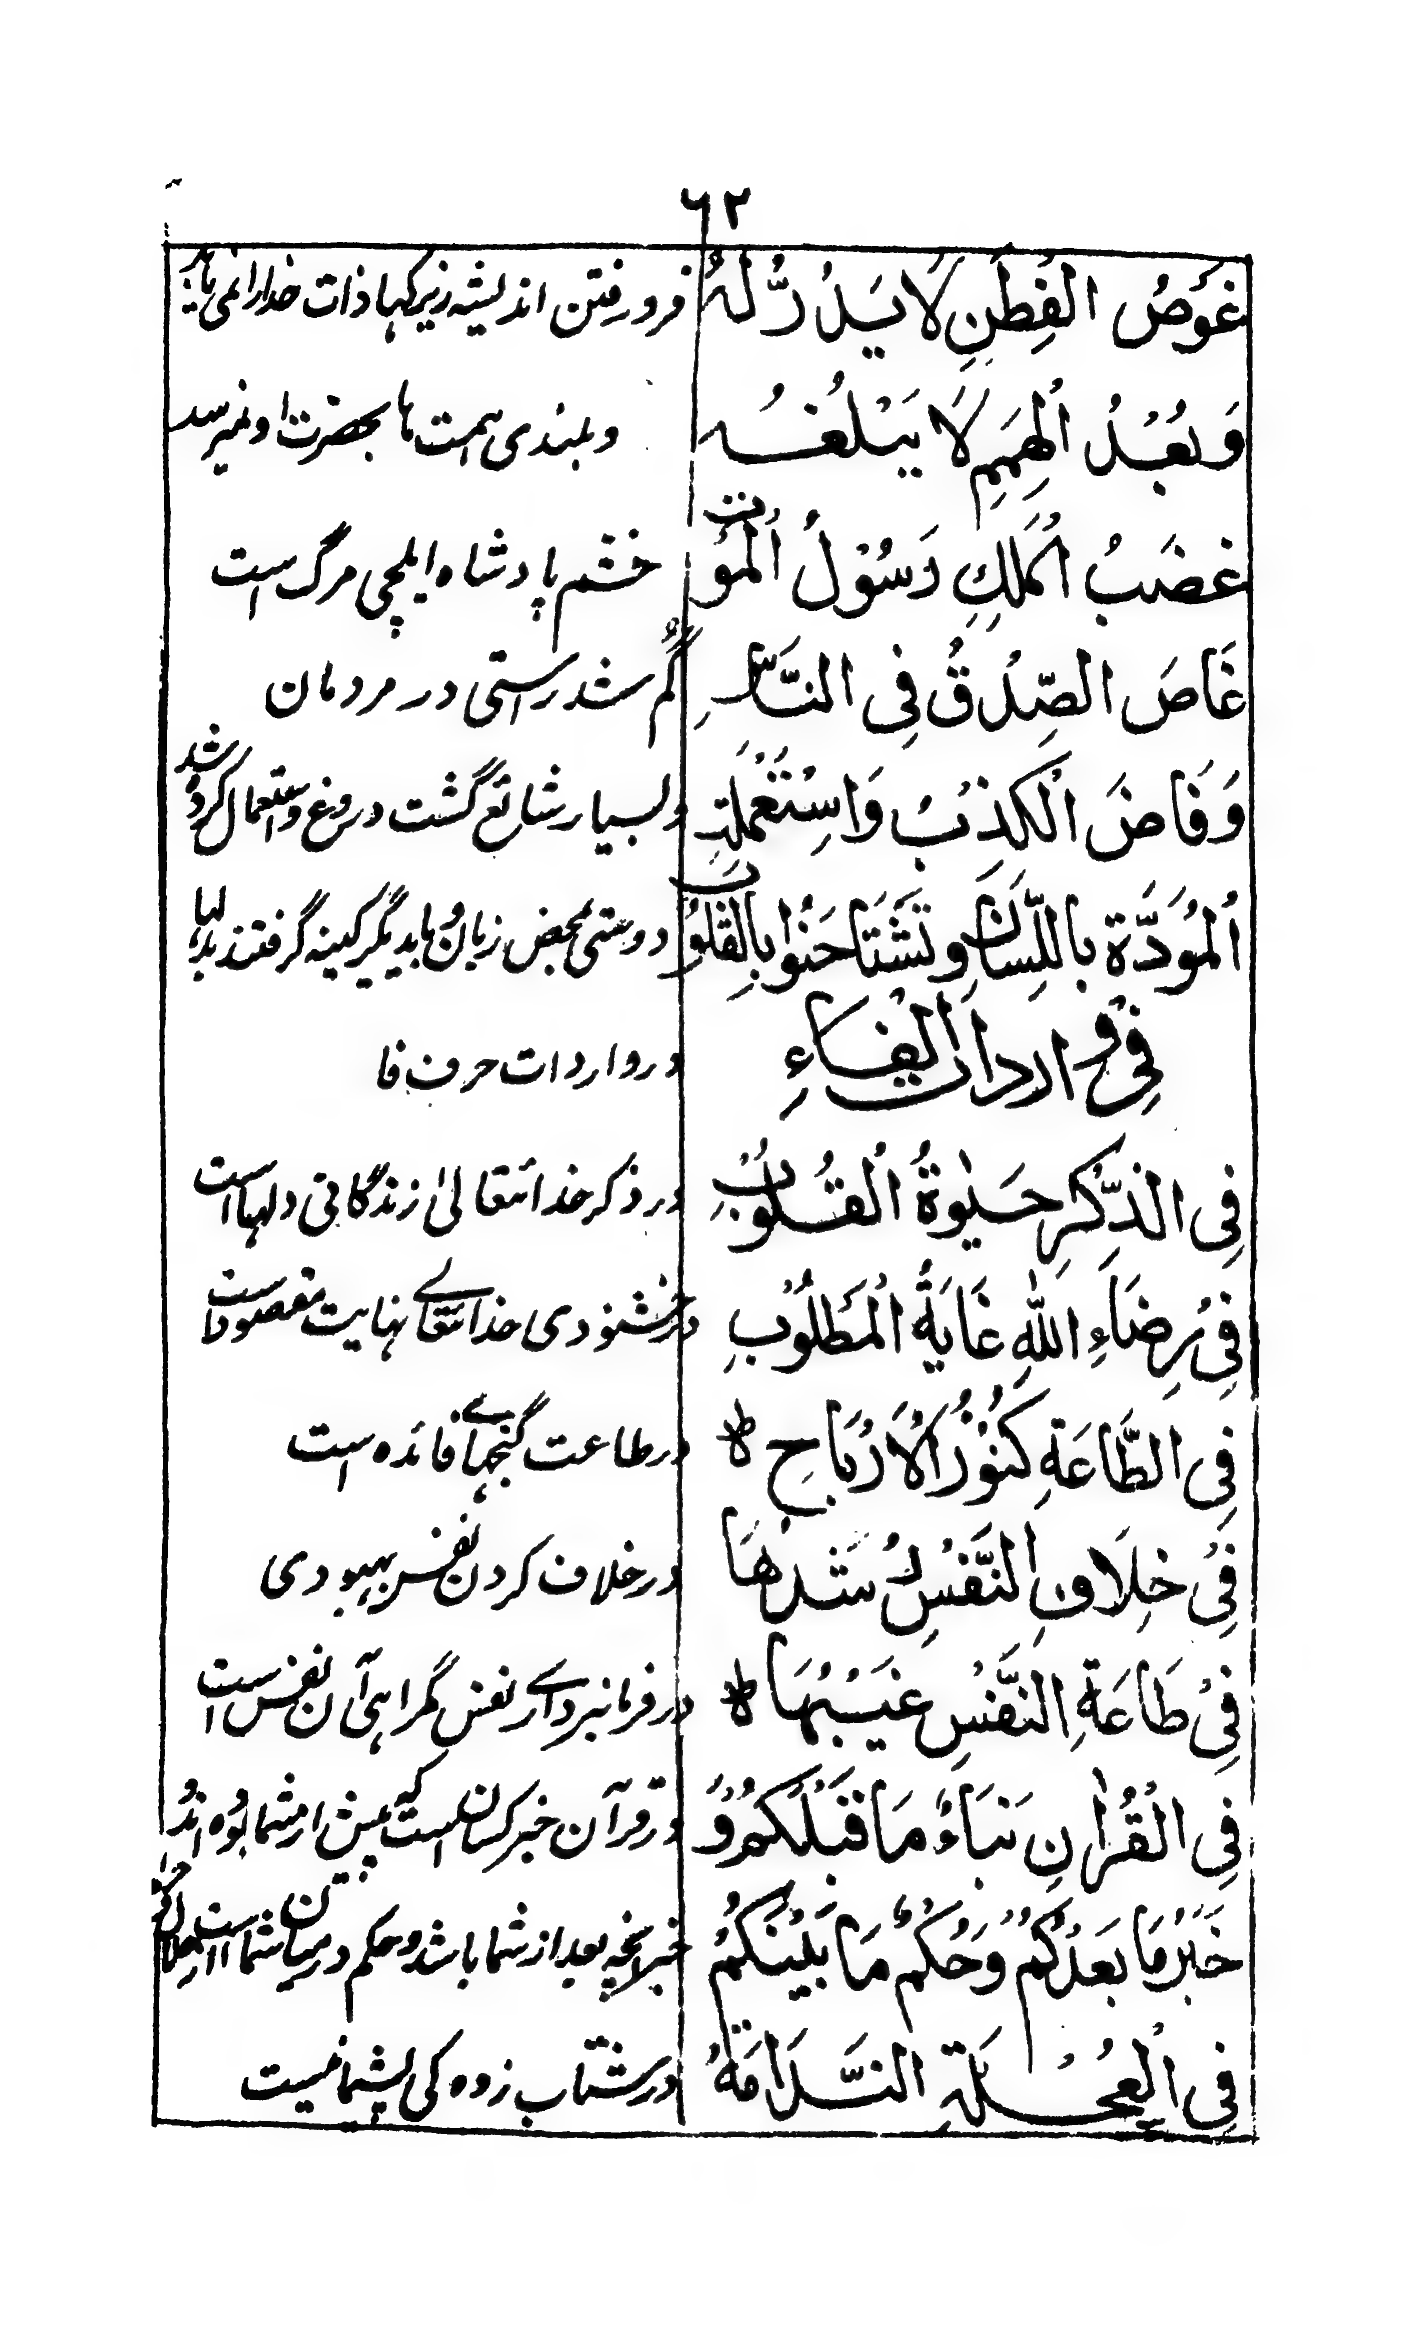 ٦٢
غَوْصُ الْفِطَنِ لَا يَدُرُّلَهُ فرو رفتن اندیشه زیرکیها ذات خدا را نمی یابد
وَ بُعْدُ الْهِمَمِ لَا يَبْلُغُه و بلندی همت ها بحضرت او نمیرسد
غَضَبُ الْمَلِكِ رَسُوْلُ الْمَوْت خشم پادشاه ایلچی مرگ است
غَاصَ الصِّدْقُ فِى النَّاسِ گم شد راستی در مردمان
وَ فَاضَ الْكَذِبُ وَاسْتُعْمِلَتِ و بسیار شائع گشت دروغ و استعمال کرده شد
الْمَوَدَّة بِاللِّسَانِ وَ تَشَتَاحَنُوا بِالْقُلُوْب دوستی محض زبان و با یدیگر کینه گرفتند بدلها
فِىْ وَارِدَاتِ الْفَاءِ در واردات حرف فا
فِى الذِّكْرِ حَيٰوةُ الْقُلُوْبِ در ذکر خدا تعالیٰ زندگانی دلها است
فِىْ رِضَاءِ اللّٰهِ غَايَةُ الْمَطْلُوْبِ در خشنودی خدا تعالے نهایت مقصود است
فِى الطَّاعَةِ كُنُوْزُ الْاَرْبَاحِ ط در طاعت گنجهاے فائده است
فِىْ خِلَافِ النَّفْسِ رُشْدُهَا در خلاف کردن نفس بهبودی
فِىْ طَاعَةِ النَّفْسِ غَيْبُهَا ط در فرمانبرداے نفس گمراهی آن نفس است
فِى الْقُرْاٰنِ نَبَاءُ مَا قَبْلَكُمْ وَ در قرآن خبر کسان است که پیش از شما بوده اند
خَبَرُ مَا بَعْدَكُمْ وَ حُكْمُ مَا بَيْنَكُمْ خبر آنچه بعد از شما باشد و حکم درمیان شما است
فِى الْعُجْلَةِ النَّدَامَةُ در شتاب زدگی پشیمانیست